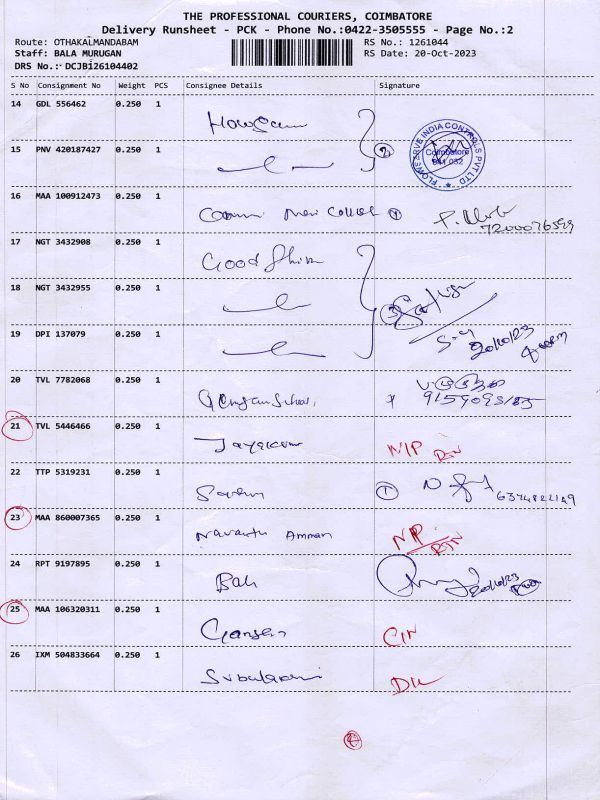 THE PROFESSIONAL COURIERS, COIMBATORE
Delivery Runsheet - PCK - Phone No.:0422-3505555 - Page No.:2
Route: OTHAKALMANDABAM RS No.: 1261044
Staff: BALA MURUGAN RS Date: 20-Oct-2023
DRS No.: DCJBI26104402
S No Consignment No Weight PCS Consignee Details Signature
14 GDL 556462 0.250 1
15 PNV 420187427 0.250 1 2
FLOWSERVE INDIA CONTROLS PVT LTD Coimbatore 641 032
16 MAA 100912473 0.250 1 1
7200076599
17 NGT 3432908 0.250 1 Good Shin
18 NGT 3432955 0.250 1 3
19 DPI 137079 0.250 1 20/10/23
20 TVL 7782068 0.250 1
21 TVL 5446466 0.250 1 Jayakumar N/P RTN
22 TTP 5319231 0.250 1 1
6374822149
23 MAA 860007365 0.250 1 Amman N/P RTN
24 RPT 9197895 0.250 1 Bali 20/10/23
25 MAA 106320311 0.250 1 Ganesan C/N
26 IXM 504833664 0.250 1 DL
4